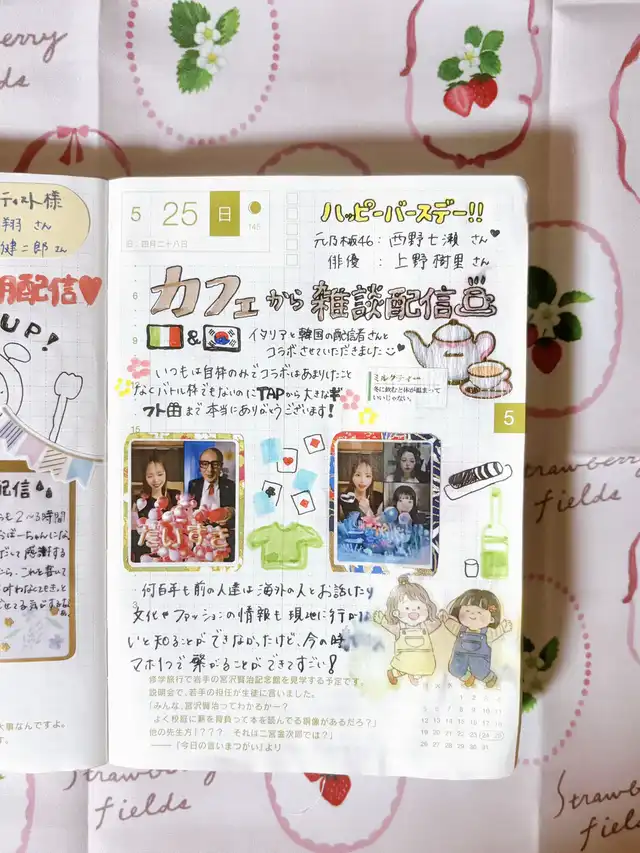 Strawberry fields
ティスト様
翔 さん
健二郎 さん
配信♡
UP!
配信
も2〜3時間
5 25 日
日, 四月二十八日
145
ハッピーバースデー!!
元乃木坂46: 西野七瀬 さん♥
俳優 : 上野樹里 さん
カフェから雑談配信
&
イタリアと韓国の配信者さんと
コラボさせていただきました
いつもは自枠のみでコラボはあまりしたこと
なくバトル枠でもないのにTAPから大きなギ
フト曲まで本当にありがとうございます!
ミルクティー
冬に飲むと体が温まって
いいじゃない。
6
9
15
3
5
だいすき
何百年も前の人達は海外の人とお話したり
文化やファッションの情報も現地に行かな
いと知ることができなかったけど、今の時
マホ1つで繋がることができてすごい!
修学旅行で岩手の宮沢賢治記念館を見学する予定です。
説明会で、若手の担任が生徒に言いました。
「みんな、宮沢賢治ってわかるかー?
よく校庭に薪を背負って本を読んでる銅像があるだろ?」
他の先生方「??? それは二宮金次郎では?」
——「今日の言いまつがい」より
1 2 3 4
5 6 7 8 9 10 11
12 13 14 15 16 17 18
19 20 21 22 23 24 25
26 27 28 29 30 31
大事なんですよ。
す。
Strawberry fields
Strawberry fields
Strawberry fields